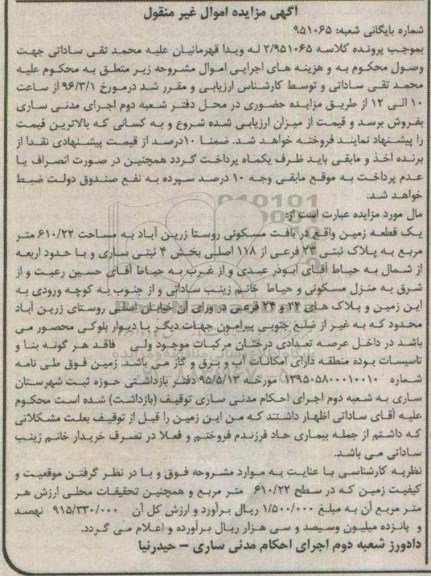 آگهی مزایده اموال غیر منقول
شماره بایگانی شعبه: ۹۵۱۰۶۵
بموجب پرونده کلاسه ۲/۹۵۱۰۶۵ له ویدا قهرمانیان علیه محمد تقی ساداتی جهت
وصول محکوم به و هزینه های اجرایی اموال مشروحه زیر متعلق به محکوم علیه
محمد تقی ساداتی و توسط کارشناس ارزیابی و مقرر شد درمورخ ۹۶/۳/۱ از ساعت
۱۰ الی ۱۲ از طریق مزایده حضوری در محل دفتر شعبه دوم اجرای مدنی ساری
بفروش برسد و قیمت از میزان ارزیابی شده شروع و به کسانی که بالاترین قیمت
را پیشنهاد نمایند فروخته خواهد شد. ضمنا ۱۰درصد از قیمت پیشنهادی نقدا از
برنده اخذ و مابقی باید ظرف یکماه پرداخت گردد همچنین در صورت انصراف یا
عدم پرداخت به موقع مابقی وجه ۱۰ درصد سپرده به نفع صندوق دولت ضبط
خواهد شد.
مال مورد مزایده عبارت است از:
یک قطعه زمین واقع در بافت مسکونی روستا زرین آباد به مساحت ۶۱۰/۲۲ متر
مربع به پلاک ثبتی ۲۳ فرعی از ۱۱۸ اصلی بخش ۴ ثبتی ساری و با حدود اربعه
از شمال به حیاط آقای ابوذر عبدی و از غرب به حیاط آقای حسین رعیت و از
شرق به منزل مسکونی و حیاط خانم زینب ساداتی و از جنوب به کوچه ورودی به
این زمین و پلاک های ۲۲ و ۲۴ فرعی در ورای آن خیابان اصلی روستای زرین آباد
محدود که به غیر از ضلع جنوبی پیرامون جهات دیگر با دیوار بلوکی محصور می
باشد در داخل عرصه تعدادی درختان مرکبات موجود ولی فاقد هر گونه بنا و
تاسیسات بوده منطقه دارای امکانات آب و برق و گاز می باشد زمین فوق طی نامه
شماره ۱۳۹۵۰۵۸۰۰۰۱۰۰۱۰ مورخه ۹۵/۵/۱۲ دفتر بازداشتی حوزه ثبت شهرستان
ساری به شعبه دوم اجرای احکام مدنی ساری توقیف (بازداشت) شده است محکوم
علیه آقای ساداتی اظهار داشتند که من این زمین را قبل از توقیف بعلت مشکلاتی
که داشتم از جمله بیماری حاد فرزندم فروختم و فعلا در تصرف خریدار خانم زینب
ساداتی می باشد.
نظریه کارشناسی با عنایت به موارد مشروحه فوق و با در نظر گرفتن موقعیت و
کیفیت زمین که در سطح ۶۱۰/۲۲ متر مربع و همچنین تحقیقات محلی ارزش هر
متر مربع آن به مبلغ ۱/۵۰۰/۰۰۰ ریال برآورد و ارزش کل آن ۹۱۵/۳۳۰/۰۰۰ نهصد
و پانزده میلیون وسیصد و سی هزار ریال برآورده و اعلام می گردد.
دادورز شعبه دوم اجرای احکام مدنی ساری - حیدرنیا